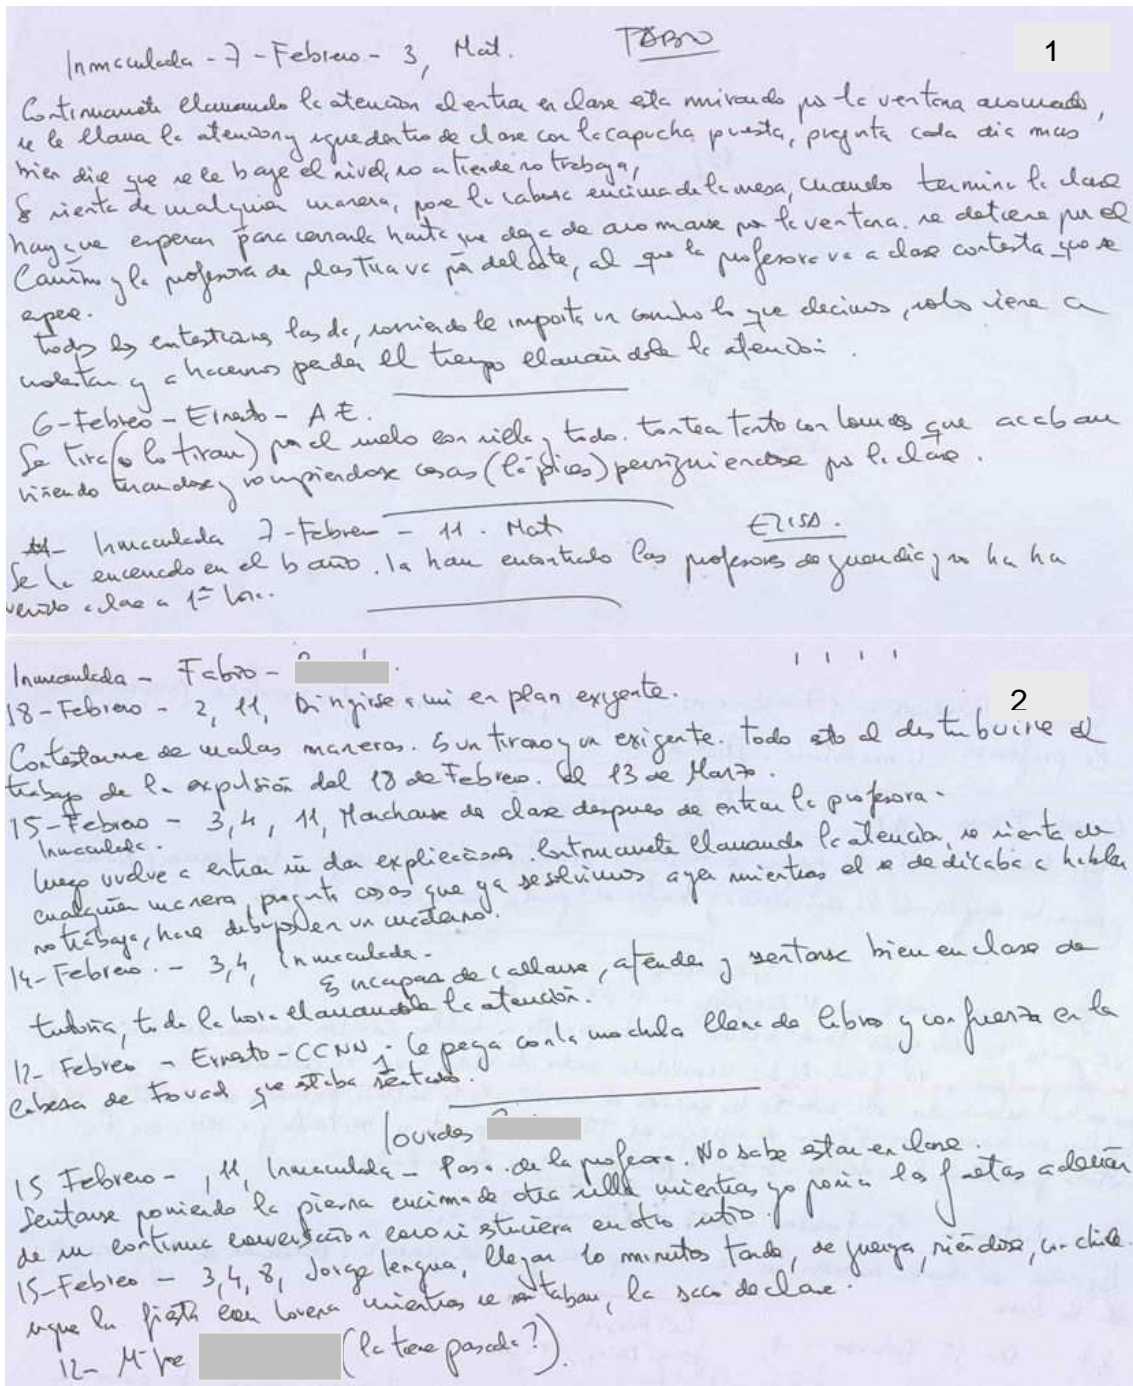 Inmaculada - 7 - Febrero - 3, Mat. FABIO
1
Continuamente llamando la atención al entrar en clase esta mirando por la ventana asomado,
se le llama la atención y sigue dentro de clase con la capucha puesta, pregunta cada dia mas
bien dice que se le baje el nivel, no atiende no trabaja,
Se sienta de cualquier manera, pone la cabeza encima de la mesa, cuando termina la clase
hay que esperar para cerrarla hasta que deja de asomarse por la ventana. se detiene por el
Camino y la profesora de plastica va por delante, al que la profesora va a clase contesta que se
espere.
todos las da, sonriendo le importa un lo que decimos, solo viene a
molestar y a hacernos perder el tiempo llamandole la atención.
6-Febreo - Ernesto - A E.
Se tira (o lo tiran) por el suelo con silla y todo. tontea tanto con que acaban
tirandose y rompiendose cosas (lápices) persiguiendose por la clase.
Inmaculada 7-Febrero - 11. Mat ELISA.
Se ha encerrado en el baño. la han encontrado los profesores de guardia y no ha ha
venido a clase a 1ª hora.
Inmaculada - Fabio -
2
18-Febrero - 2, 11, Dirigirse a mi en plan exigente.
Contestarme de malas maneras. Es un tirano y un exigente. todo esto al distribuirle el
trabajo de la expulsión del 18 de Febrero. al 13 de Marzo.
15-Febrero - 3, 4, 11, Marcharse de clase despues de entrar la profesora.
Inmaculada.
luego vuelve a entrar sin dar explicaciones. Continuamente llamando la atención, se sienta de
cualquier manera, pregunta cosas que ya resolvimos ayer mientras el se dedicaba a hablar
no trabaja, hace dibujos en un cuaderno.
14-Febrero. - 3,4, Inmaculada.
Es incapaz de callarse, atender y sentarse bien en clase de
tutoria, toda la hora llamandole la atención.
12-Febreo - Ernesto-CCNN. le pega con la mochila llena de libros y con fuerza en la
Cabeza de Fouad que estaba sentado.
lourdes
15 Febrero - , 11, Inmaculada - Pasa de la profesora. No sabe estar en clase.
Sentarse poniendo la pierna encima de otra silla mientras yo ponia las faltas además
de su continua conversación como si estuviera en otro sitio.
15-Febreo - 3,4, 8, Jorge lengua, llegar 10 minutos tarde, de juerga, riéndose, un chicle
sigue la fiesta con lorena mientras se sentaban, la saco de clase.
12- Mª Jose (la tiene pasada?).